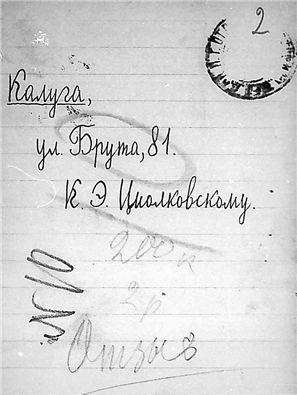 2
Калуга,
ул. Брута, 81.
К. Э. Циолковскому.
200 к
2р
№10
Отзыв